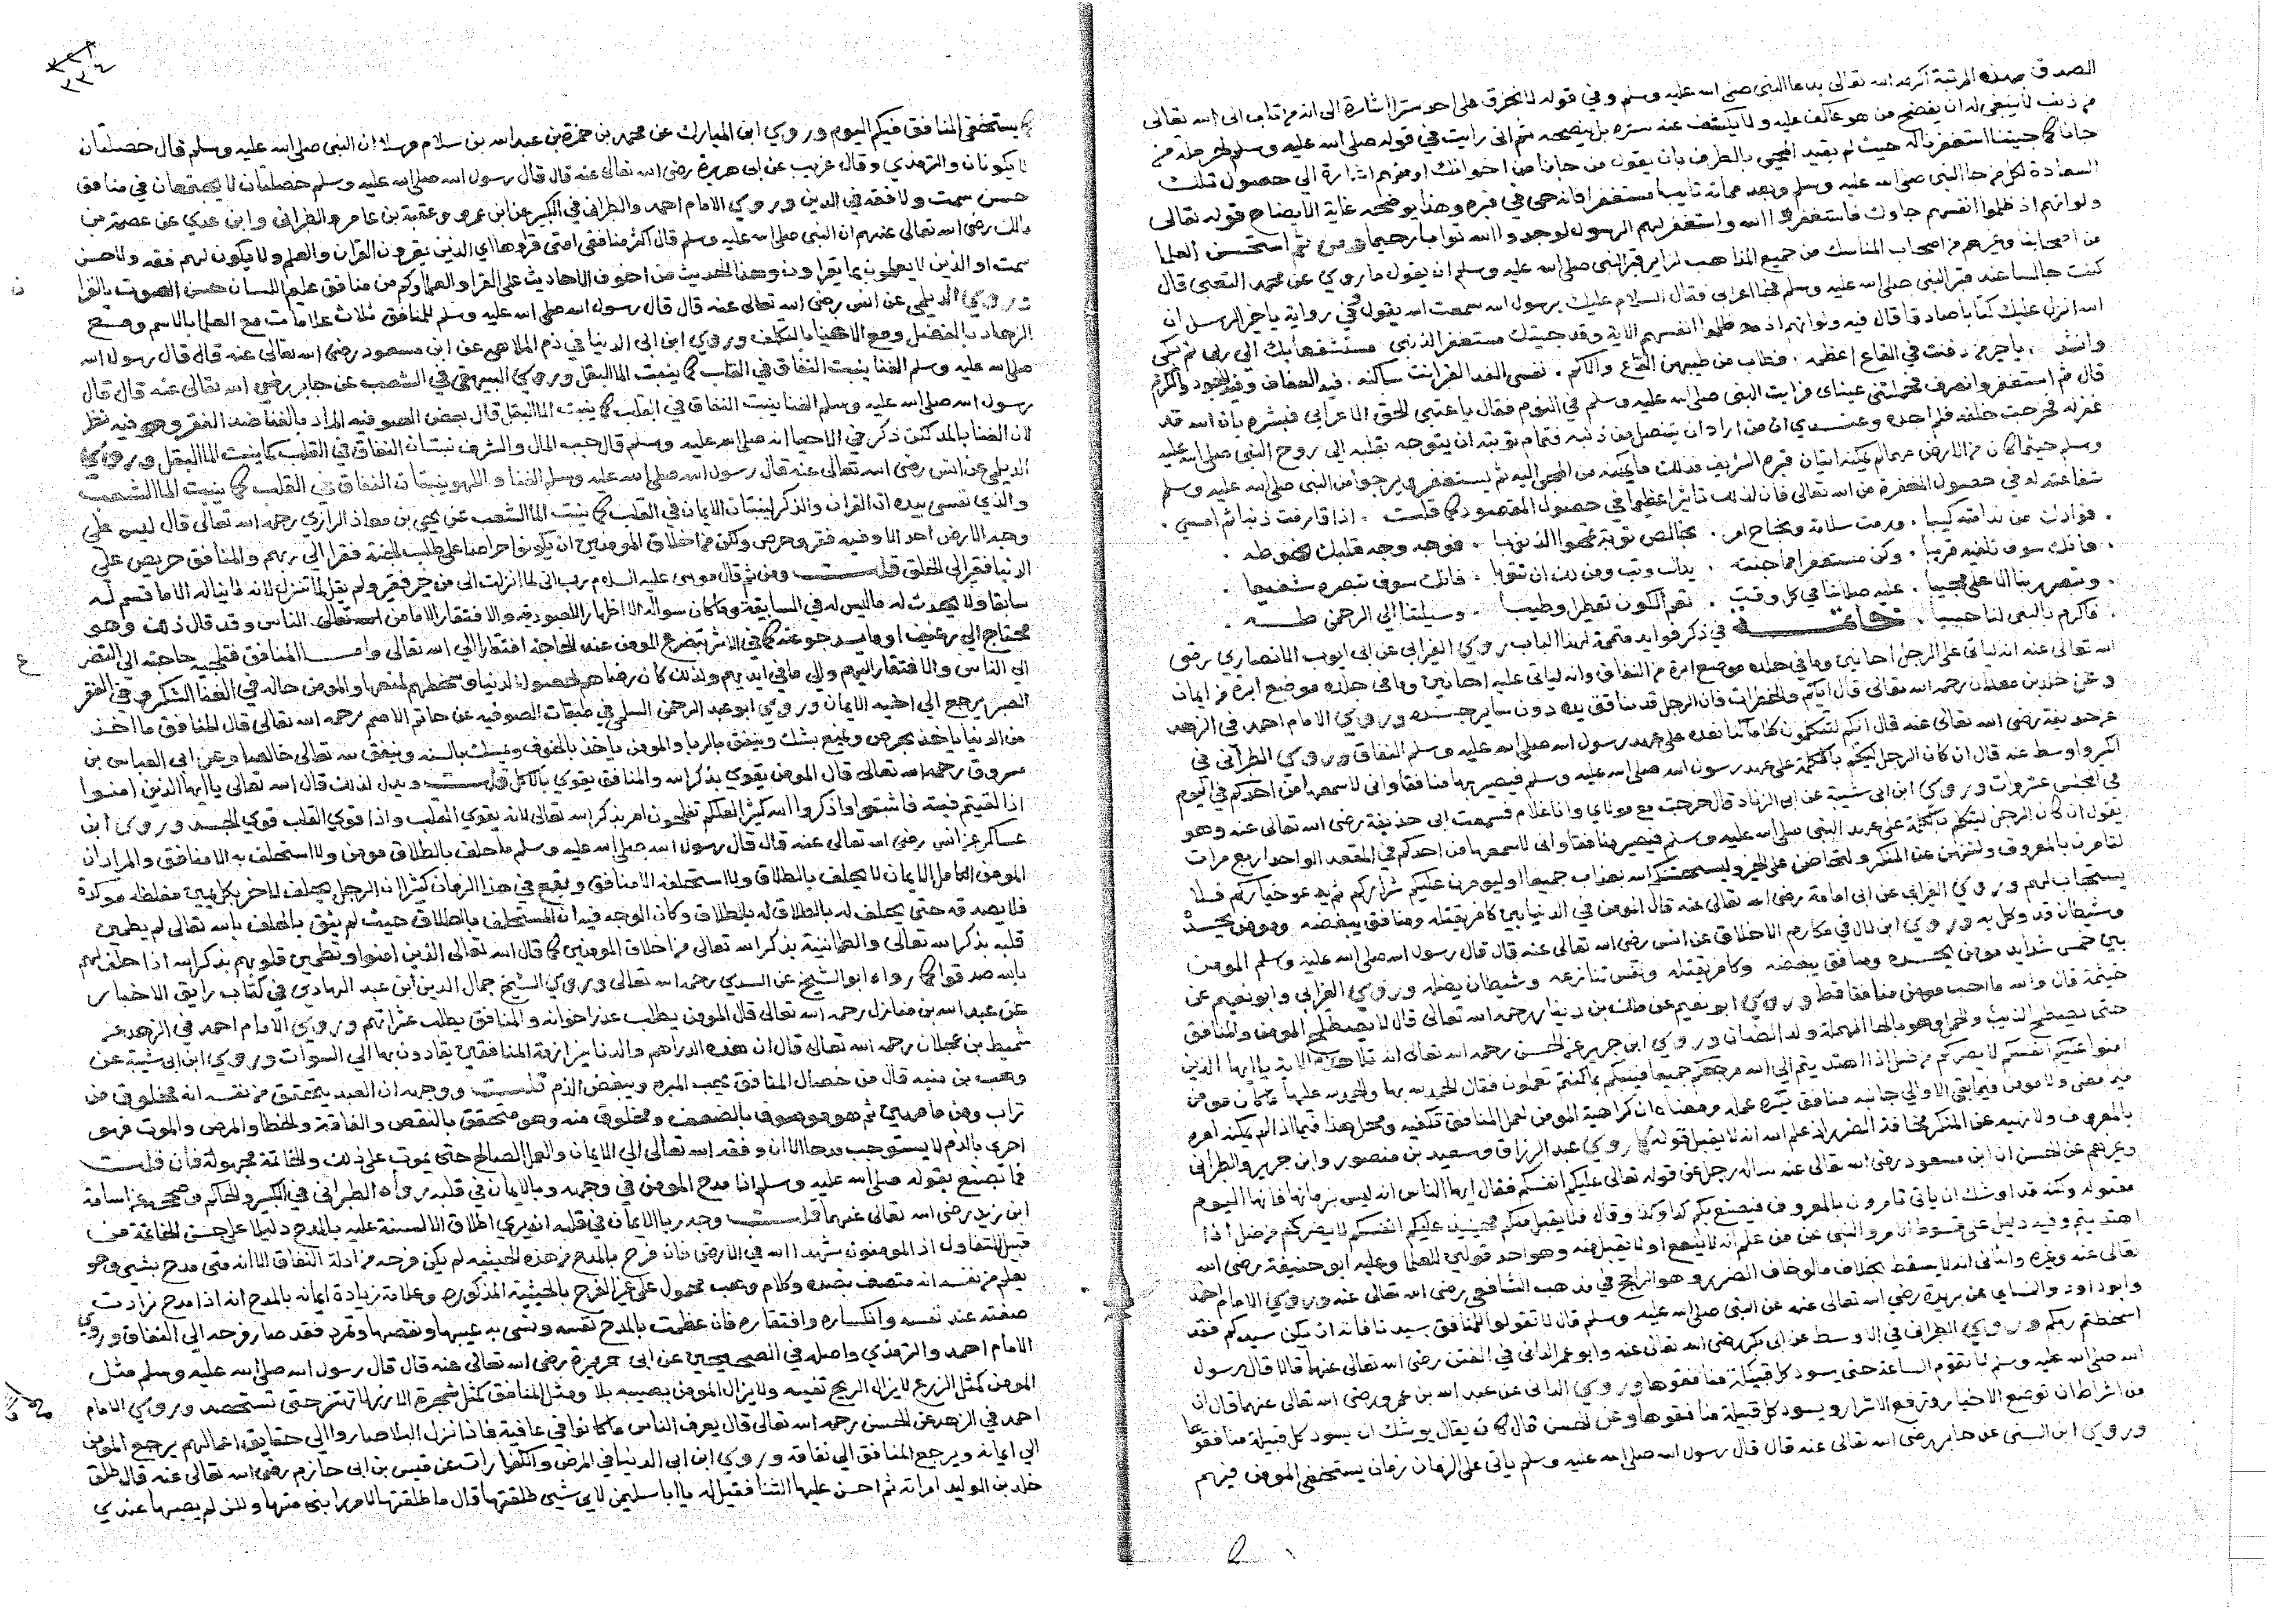 الصدق بهذه المرتبة اكرمه الله تعالى بدعا النبى صلى الله عليه وسلم وفي قوله لا تخرق على احد سترا اشارة الى انه من تاب الى الله تعالى
من ذنب لا ينبغي له ان يفضح من هو عاكف عليه ولا يكشف عنه ستره بل ينصحه ثم انى رايت في قوله صلى الله عليه وسلم
جانا كما جيتنا استغفرنا له حيث لم يقيد المجي بالطرف بان يقول من جانا من اخوانك او غيرهم اشارة الي حصول تلك
السعادة لكل من جا النبى صلى الله عليه وسلم وبعد مماته تايبا مستغفرا فانه حي في قبره وهذا يوضحه غاية الايضاح قوله تعالى
ولو انهم اذ ظلموا انفسهم جاوك فاستغفروا الله واستغفر لهم الرسول لوجدوا الله توابا رحيما ومن ثم استحسن العلما
من اصحابنا وغيرهم من اصحاب المناسك من جميع المذاهب لزاير قبر النبى صلى الله عليه وسلم ان يقول ما روي عن محمد العتبى قال
كنت جالسا عند قبر النبى صلى الله عليه وسلم فجا اعرابى فقال السلام عليك يرسول الله سمعت الله يقول وفي رواية يا خير الرسل ان
الله انزل عليك كتابا صادقا قال فيه ولو انهم اذ ظلموا انفسهم الاية وقد جيتك مستغفرا لذنبى مستشفعا بك الي ربى ثم بكى
وانشد . يا خير من دفنت في القاع اعظمه . فطاب من طيبهن القاع والاكم . نفسى الفدا لقبر انت ساكنه . فيه العفاف وفيه الجود والكرم
قال ثم استغفر وانصرف فحملتنى عيناى فرايت النبى صلى الله عليه وسلم في النوم فقال يا عتبى الحق الاعرابى فبشره بان الله قد
غفر له فخرجت خلفه فلم اجده وعندي ان من اراد ان يتنصل من ذنبه فتمام توبته ان يتوجه بقلبه الى روح النبى صلى الله عليه
وسلم حيثما كان من الارض يمكنه اتيان قبره الشريف فذلك ما يمكنه من المجي اليه ثم يستغفر ويرجو من النبى صلى الله عليه وسلم
شفاعته له في حصول المغفرة من الله تعالى فان لذلك تاثيرا عظيما في حصول المقصود كما قلت . اذا قارفت ذنبا ثم امسي .
. فوادك عن ندامته كييبا . ورمت سلامة ونجاح امر . بخالص توبة تمحوا الذنوبا . فوجه وجه قلبك نحو طه .
. فانك سوف تلفيه قريبا . وكن مستغفرا مما جنته . يداك وتب ومن لك ان تتوبا . فانك سوف تبصره شفيعا .
. وتبصر ربنا الاعلى مجيبا . عليه صلاتنا في كل وقت . تعم الكون تعطيرا وطيبا . وسيلتنا الي الرحمن طه .
. فاكرم بالنبى لنا حبيبا . خاتمة في ذكر فوايد متممة لهذا الباب روي الفريابى عن ابى ايوب الانصاري رضى
الله تعالى عنه انه لياتى على الرجل احايين وما في جلده موضع ابرة من النفاق وانه لياتى عليه احايين وما في جلده موضع ابرة من ايمان
وعن خالد بن معدان رحمه الله تعالى قال اياكم والخطرات فان الرجل قد تنافق يده دون ساير جسده وروي الامام احمد في الزهد
عن حذيفة رضى الله تعالى عنه قال انكم لتتكلمون كلاما كنا نعده على عهد رسول الله صلى الله عليه وسلم النفاق وروي الطبرانى في
الكبير واوسط عنه قال ان كان الرجل ليتكلم بالكلمة على عهد رسول الله صلى الله عليه وسلم فيصير بها منافقا وانى لاسمعها من احدكم في اليوم
في المجلس عشر مرات وروي ابن ابى شيبة عن ابى الزياد قال خرجت مع مولاي وانا غلام فسمعت ابى حذيفة رضى الله تعالى عنه وهو
يقول ان كان الرجل ليتكلم بالكلمة على عهد النبى صلى الله عليه وسلم فيصير منافقا وانى لاسمعها من احدكم في المقعد الواحد اربع مرات
لتامرن بالمعروف ولتنهن عن المنكر ولتحاضن على الخير او ليسحتنكم الله بعذاب جميعا او ليومرن عليكم شراركم ثم يدعو خياركم فلا
يستجاب لهم وروي الفريابى عن ابى امامة رضى الله تعالى عنه قال المومن في الدنيا بين كافر يقتله ومنافق يبغضه ومومن يحسده
وشيطان قد وكل به وروي ابن لال في مكارم الاخلاق عن انس رضى الله تعالى عنه قال قال رسول الله صلى الله عليه وسلم المومن
بين خمس شدايد مومن يحسده ومنافق يبغضه وكافر يقتله ونفس تنازعه وشيطان يضله وروي الفريابى وابو نعيم عن
خيثمة قال والله ما احب مومن منافقا قط وروي ابو نعيم عن ملك بن دنيار رحمه الله تعالى قال لا يصطلح المومن والمنافق
حتى يصطلح الذيب والحمل وهو بالحا المهملة ولد الضان وروي ابن جرير عن الحسن رحمه الله تعالى انه تلا هذه الاية يا ايها الذين
امنوا عليكم انفسكم لا يضركم من ضل اذا اهتديتم الى الله مرجعكم جميعا فينبيكم بما كنتم تعملون فقال الحمد لله بها والحمد لله عليها ما كان مومن
فيما مضى ولا مومن فيما بقي الا والي جانبه منافق يكره عمله ومعناه ان كراهية المومن لعمل المنافق تكفيه ومحل هذا فيما اذا لم يمكنه امره
بالمعروف ولا نهيه عن المنكر مخافة الضرر او علم الله انه لا يقبل قوله كما روي عبد الرزاق وسعيد بن منصور وابن جرير والطبرانى
وغيرهم عن الحسن ان ابن مسعود رضى الله تعالى عنه ساله رجل عن قوله تعالى عليكم انفسكم فقال ايها الناس انه ليس بزمانها فانها اليوم
مقبولة ولكنه قد اوشك ان ياتى تامرون بالمعروف فيصنع بكم كذا وكذا وقال فلا يقبل منكم فحينيذ عليكم انفسكم لا يضركم من ضل اذا
اهتديتم وفيه دليل على سقوط الامر والنهى عن من علم انه لا يسمع او لا يقبل منه وهو احد قولين للعلما وعليه ابو حنيفة رضى الله
تعالى عنه وغيره والثانى انه لا يسقط بخلاف ما لو خاف الضرر وهو الراجح في مذهب الشافعى رضى الله تعالى عنه وروي الامام احمد
وابو داود والنساي عن بريدة رضى الله تعالى عنه عن النبى صلى الله عليه وسلم قال لا تقولوا للمنافق سيدنا فانه ان يكن سيدكم فقد
اسخطتم ربكم وروي الطبرانى في الاوسط عن ابى بكر رضى الله تعالى عنه وابو عمر الدانى في الفتن رضى الله تعالى عنهما قالا قال رسول
الله صلى الله عليه وسلم لا تقوم الساعة حتى يسود كل قبيلة منافقوها وروي الدانى عن عبد الله بن عمرو رضى الله تعالى عنهما قال ان
من اشراط ان توضع الاخيار وترفع الاشرار ويسود كل قبيلة منافقوها وعن الحسن قال كان يقال يوشك ان يسود كل قبيلة منافقوها
وروي ابن السنى عن جابر رضى الله تعالى عنه قال قال رسول الله صلى الله عليه وسلم ياتى على الزمان زمان يستخفى المومن فيهم
٣٣٤
كما يستخفى المنافق فيكم اليوم وروي ابن المبارك عن محمد بن حمزة بن عبد الله بن سلام مرسلا ان النبى صلى الله عليه وسلم قال خصلتان
لا يكونان والترمذي وقال غريب عن ابى هريرة رضى الله تعالى عنه قال قال رسول الله صلى الله عليه وسلم خصلتان لا يجتمعان في منافق
حسن سمت ولا فقه في الدين وروي الامام احمد والطبرانى في الكبير عن ابن عمرو وعقبة بن عامر والطبرانى وابن عدي عن عصمة بن
مالك رضى الله تعالى عنهم ان النبى صلى الله عليه وسلم قال اكثر منافقى امتى قراوها اي الذين يقرون القران والعلم ولا يكون لهم فقه ولا حسن
سمت او الذين لا يعملون بما يقراون وهذا الحديث من اخوف الاحاديث على القرا والعلما وكم من منافق عليم اللسان حسن الصوت بالقرا
وروي الديلمى عن انس رضى الله تعالى عنه قال قال رسول الله صلى الله عليه وسلم للمنافق ثلاث علامات مع العلما بالاسم ومع
الزهاد بالفضل ومع الاغنيا بالتكلف وروي ابن ابى الدنيا في ذم الملاهى عن ابن مسعود رضى الله تعالى عنه قال قال رسول الله
صلى الله عليه وسلم الغنا ينبت النفاق في القلب كما ينبت الما البقل وروي البيهقى في الشعب عن جابر رضى الله تعالى عنه قال قال
رسول الله صلى الله عليه وسلم الغنا ينبت النفاق في القلب كما ينبت الما البقل قال بعض الصوفيه المراد بالغنا ضد الفقر وهو فيه نظر
لان الغنا بالمد لكن ذكر في الاحيا انه صلى الله عليه وسلم قال حب المال والشرف ينبتان النفاق في القلب كما ينبت الما البقل وروي
الديلمى عن انس رضى الله تعالى عنه قال رسول الله صلى الله عليه وسلم الغنا واللهو ينبتان النفاق في القلب كما ينبت الما الشعب
والذي نفسى بيده ان القران والذكر لينبتان الايمان في القلب كما ينبت الما الشعب عن يحيى بن معاذ الرازي رحمه الله تعالى قال ليس على
وجه الارض احد الا وفيه فقر وحرص ولكن من اخلاق المومنين ان يكونوا حراصا على طلب الجنة فقرا الي ربهم والمنافق حريص على
الدنيا فقير الى الخلق قلت ومن ثم قال موسى عليه السلام رب انى لما انزلت الى من خير فقير ولم يقل لما تنزل لانه ما يناله الا ما قسم له
سابقا ولا يحدث له ما ليس له في السابقة وما كان سواله الا اظهارا لصدقه والافتقار الا من الله تعالى الناس وقد قال ذلك وهو
محتاج الي رغيف او ما يسد جوعته كما في الاثر بتضرع المومن عند الحاجة افتقارا الي الله تعالى واما المنافق فتلجيه حاجته الى التضر
الى الناس والافتقار اليهم والي ما في ايديهم ولذلك كان رضاهم لحصول الدنيا وسخطهم لمنعها والمومن حاله في الغنا الشكر وفي الفقر
الصبر يرجع الى اخيه الايمان وروي ابو عبد الرحمن السلمى في طبقات الصوفيه عن حاتم الاصم رحمه الله تعالى قال المنافق ما اخذ
من الدنيا ياخذ بحرص ويمنع بشك وينفق بالريا والمومن ياخذ بالخوف ويمسك بالسنه وينفق لله تعالى خالصا وعن ابى العباس بن
مسروق رحمه الله تعالى قال المومن يقوي بذكر الله والمنافق يقوي بالاكل قلت ويدل لذلك قال الله تعالى يا ايها الذين امنوا
اذا لقيتم فيئة فاثبتوا واذكروا الله كثيرا لعلكم تفلحون امر بذكر الله تعالى لانه يقوي القلب واذا قوي القلب قوي الجسد وروي ابن
عساكر عن انس رضى الله تعالى عنه قال قال رسول الله صلى الله عليه وسلم ما حلف بالطلاق مومن ولا استحلف به الا منافق والمراد ان
المومن الكامل الايمان لا يحلف بالطلاق ولا استحلفه الا منافق ويقع في هذا الزمان كثيرا ان الرجل يحلف لاخر بكل يمين مغلظه موكدة
فلا يصدقه حتى يحلف له بالطلاق له بالطلاق وكان الوجه فيه ان المستحلف بالطلاق حيث لم يثق بالحلف بالله تعالى لم يطمين
قلبه بذكر الله تعالى والطمانينة بذكر الله تعالى من اخلاق المومنين كما قال الله تعالى الذين امنوا وتطمين قلوبهم بذكر الله اذا حلف لهم
بالله صدقوا كما رواه ابو الشيخ عن السدي رحمه الله تعالى وروي الشيخ جمال الدين ابن عبد الهادي في كتاب رايق الاخبار
عن عبد الله بن منازل رحمه الله تعالى قال المومن يطلب عذر اخوانه والمنافق يطلب عثراتهم وروي الامام احمد في الزهد عن
شميط بن عجلان رحمه الله تعالى قال ان هذه الدراهم والدنانير ازمة المنافقين يقادون بها الى السوات وروي ابن ابى شيبة عن
وهب بن منبه قال من خصال المنافق يحب المدح ويبغض الذم قلت ووجهه ان العبد يتحقق من نفسه انه مخلوق من
تراب ومن ما مهين ثم هو موصوف بالضعف ومخلوق منه وهو متحقق بالنقص والفاقة والخطا والمرض والموت فهو
احرى بالذم لا يستوجب مدحا الا ان وفقه الله تعالى الى الايمان والعمل الصالح حتى يموت على ذلك والخاتمة مجهولة فان قلت
فما تصنع بقوله صلى الله عليه وسلم اذا مدح المومن في وجهه ربا الايمان في قلبه رواه الطبرانى في الكبير والحاكم وصححه عن اسامة
ابن زيد رضى الله تعالى عنهما قلت وجه ربا الايمان في قلبه انه يري اطلاق الالسنة عليه بالمدح دليلا على حسن الخاتمة من
قبيل التفاول اذ المومنون شهدا الله في الارض فان فرح بالمدح من هذه الحيثيه لم يكن فرحه من ادلة النفاق الا انه متى مدح بشي وهو
يعلم من نفسه انه متصف بضده وكلام وهب محمول على غير الفرح بالحيثية المذكوره وعلامة زيادة ايمانه بالمدح انه اذا مدح زادت
صفته عند نفسه وانكساره وافتقاره فان عظمت بالمدح نفسه ونسى به عيبها ونقصها وتمرد فقد صار فرحه الى النفاق وروي
الامام احمد والترمذي واصله في الصحيحين عن ابى هريرة رضى الله تعالى عنه قال قال رسول الله صلى الله عليه وسلم مثل
المومن كمثل الزرع لا يزال الريح تفييه ولا يزال المومن يصيبه بلا ومثل المنافق كمثل شجرة الارز لا تهتز حتى تستحصد وروي الامام
احمد في الزهد عن الحسن رحمه الله تعالى قال يعرف الناس ما كانوا في عافية فاذا نزل البلا صاروا الي حقايق اعمالهم يرجع المومن
الي ايمانه ويرجع المنافق الي نفاقه وروي ابن ابى الدنيا في المرض والكفارات عن قيس بن ابى حازم رضى الله تعالى عنه قال طلق
خلد بن الوليد امراته ثم احسن عليها الثنا فقيل له يا ابا سليمن لاي شيى طلقتها قال ما طلقتها لامر رابنى منها ولكن لم يصبها عندي